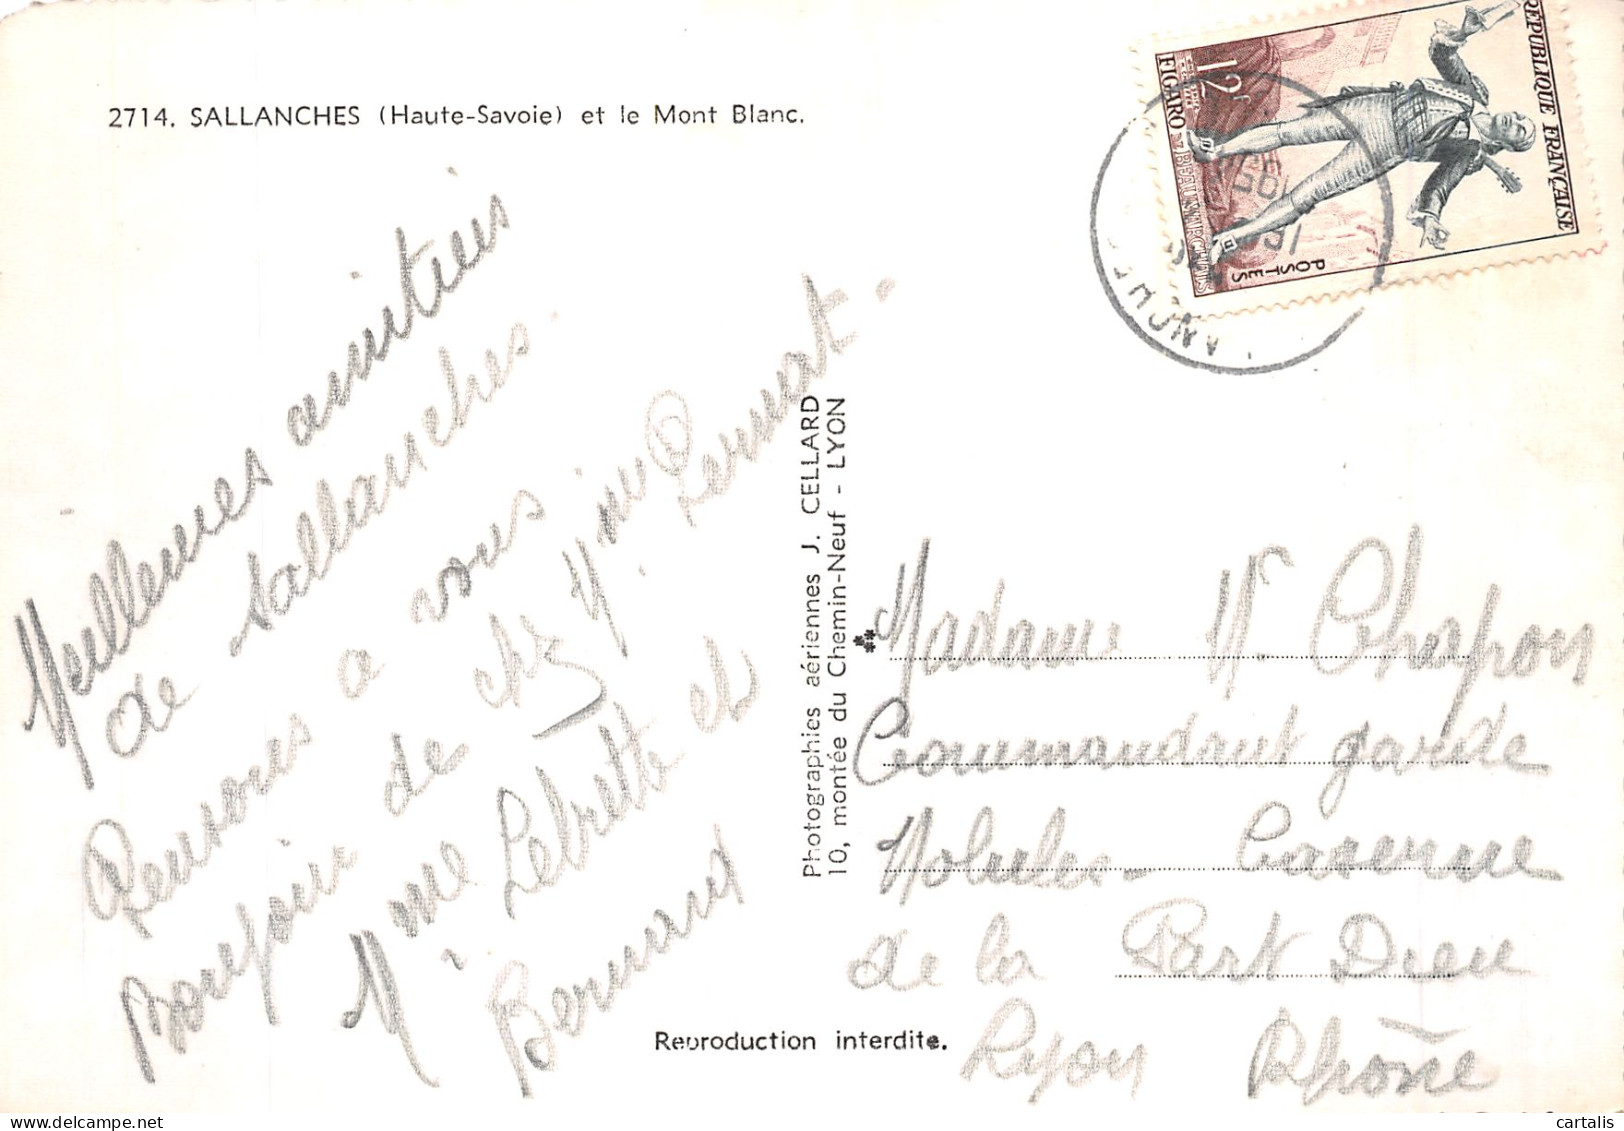 2714. SALLANCHES (Haute-Savoie) et le Mont Blanc.
Meilleures amitiés
de Sallanches.
Pensons a vous
Bonjour de chez
Mme Lebrette et
Bernard
RÉPUBLIQUE FRANÇAISE
12f
FIGARO DE BEAUMARCHAIS
POSTES
Photographies aériennes J. CELLARD
10, montée du Chemin-Neuf - LYON
Madame V. Chapon
Commandant garde
Mobiles - Caserne
de la Part Dieu
Lyon Rhône
Reproduction interdite.
cartalis